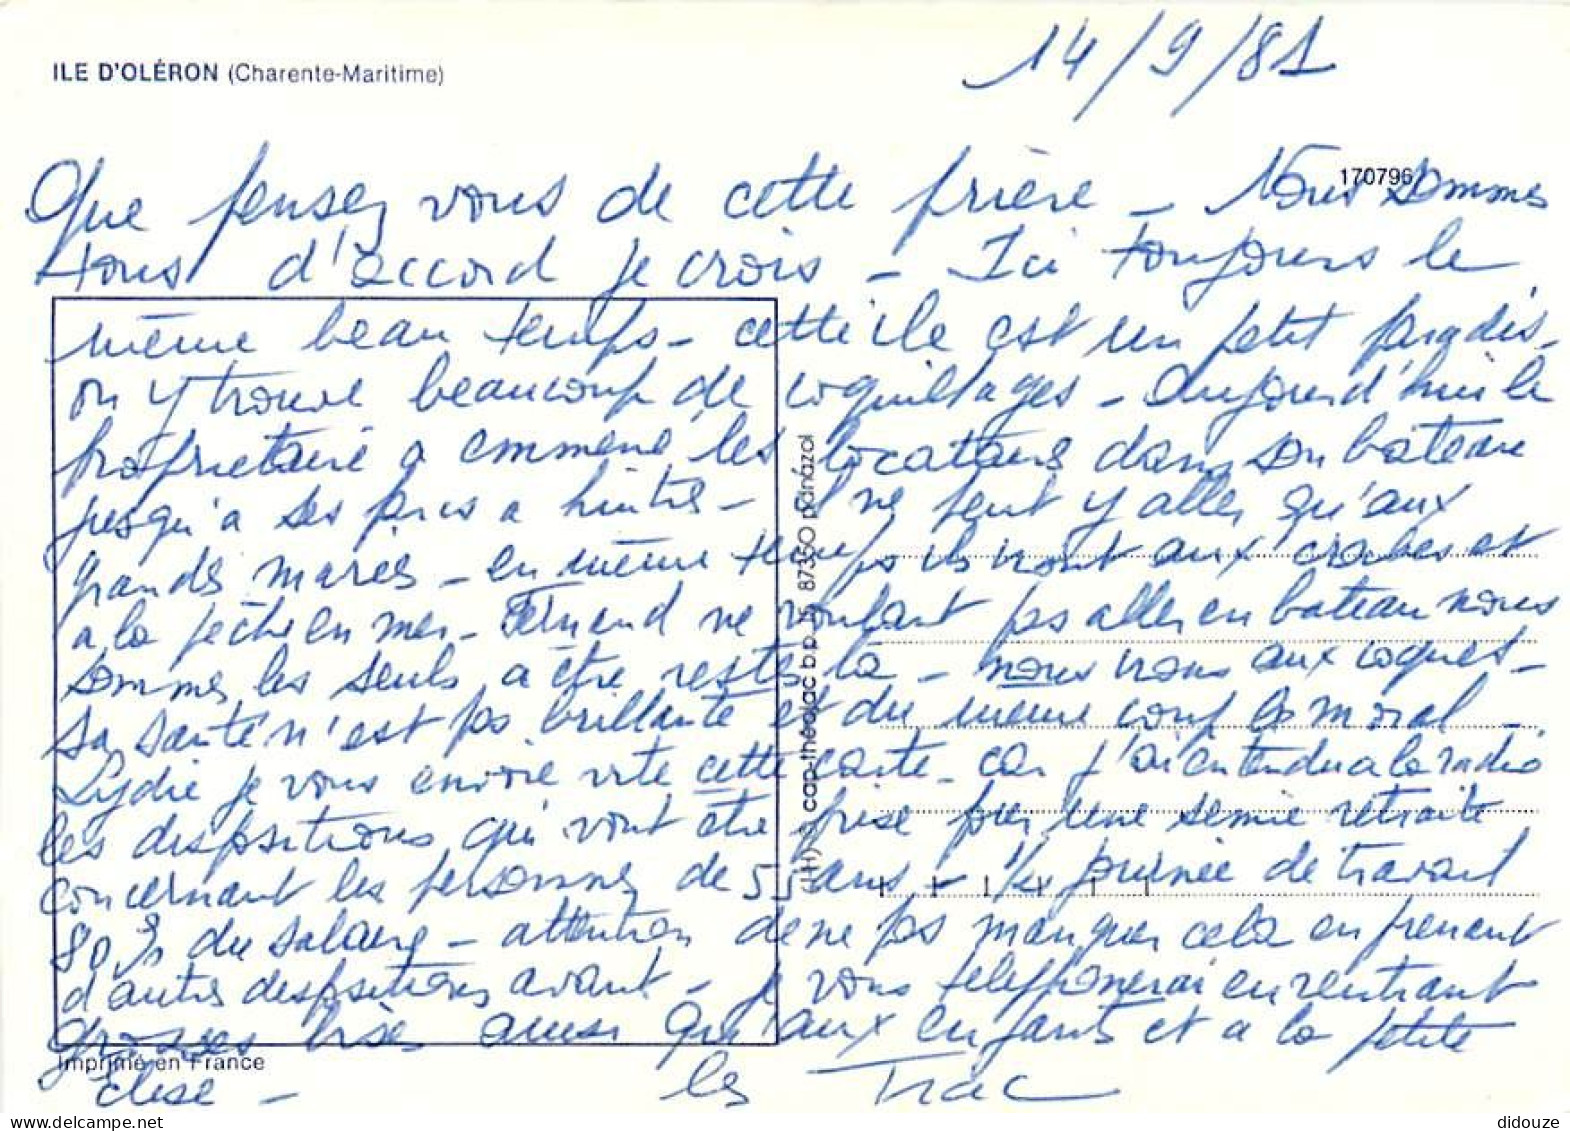 ILE D'OLÉRON (Charente-Maritime)
14/9/81
170796
Que pensez vous de cette prière - Nous sommes
tous d'accord je crois - Ici toujours le
même beau temps - cette île est un petit paradis -
on y trouve beaucoup de coquillages - Aujourd'hui le
propriétaire a emmené les locataires dans son bateau
jusqu'à ses parcs a huitres - il ne peut y aller qu'aux
grandes marées - en même temps ils vont aux crabes et
a la pêche en mer - Fernand ne voulant pas aller en bateau nous
sommes les seuls a être restés là - nous nous aux coques -
sa santé n'est pas brillante et du même coup le moral -
Lydie je vous envoie vite cette carte - car j'ai entendu a la radio
les dispositions qui vont être prise pour une semie retraite
concernant les personnes de 55 ans - 1/2 journée de travail
80 % du salaire - attention de ne pas manquer cela en prenant
d'autres dispositions avant - je vous téléphonerai en rentrant
grosses bises ainsi qu'aux enfants et a la petite
Elise - les Triac
(LH) cap-théojac b.p. 15 87350 panazol
Imprimé en France
didouze
delcampe.net